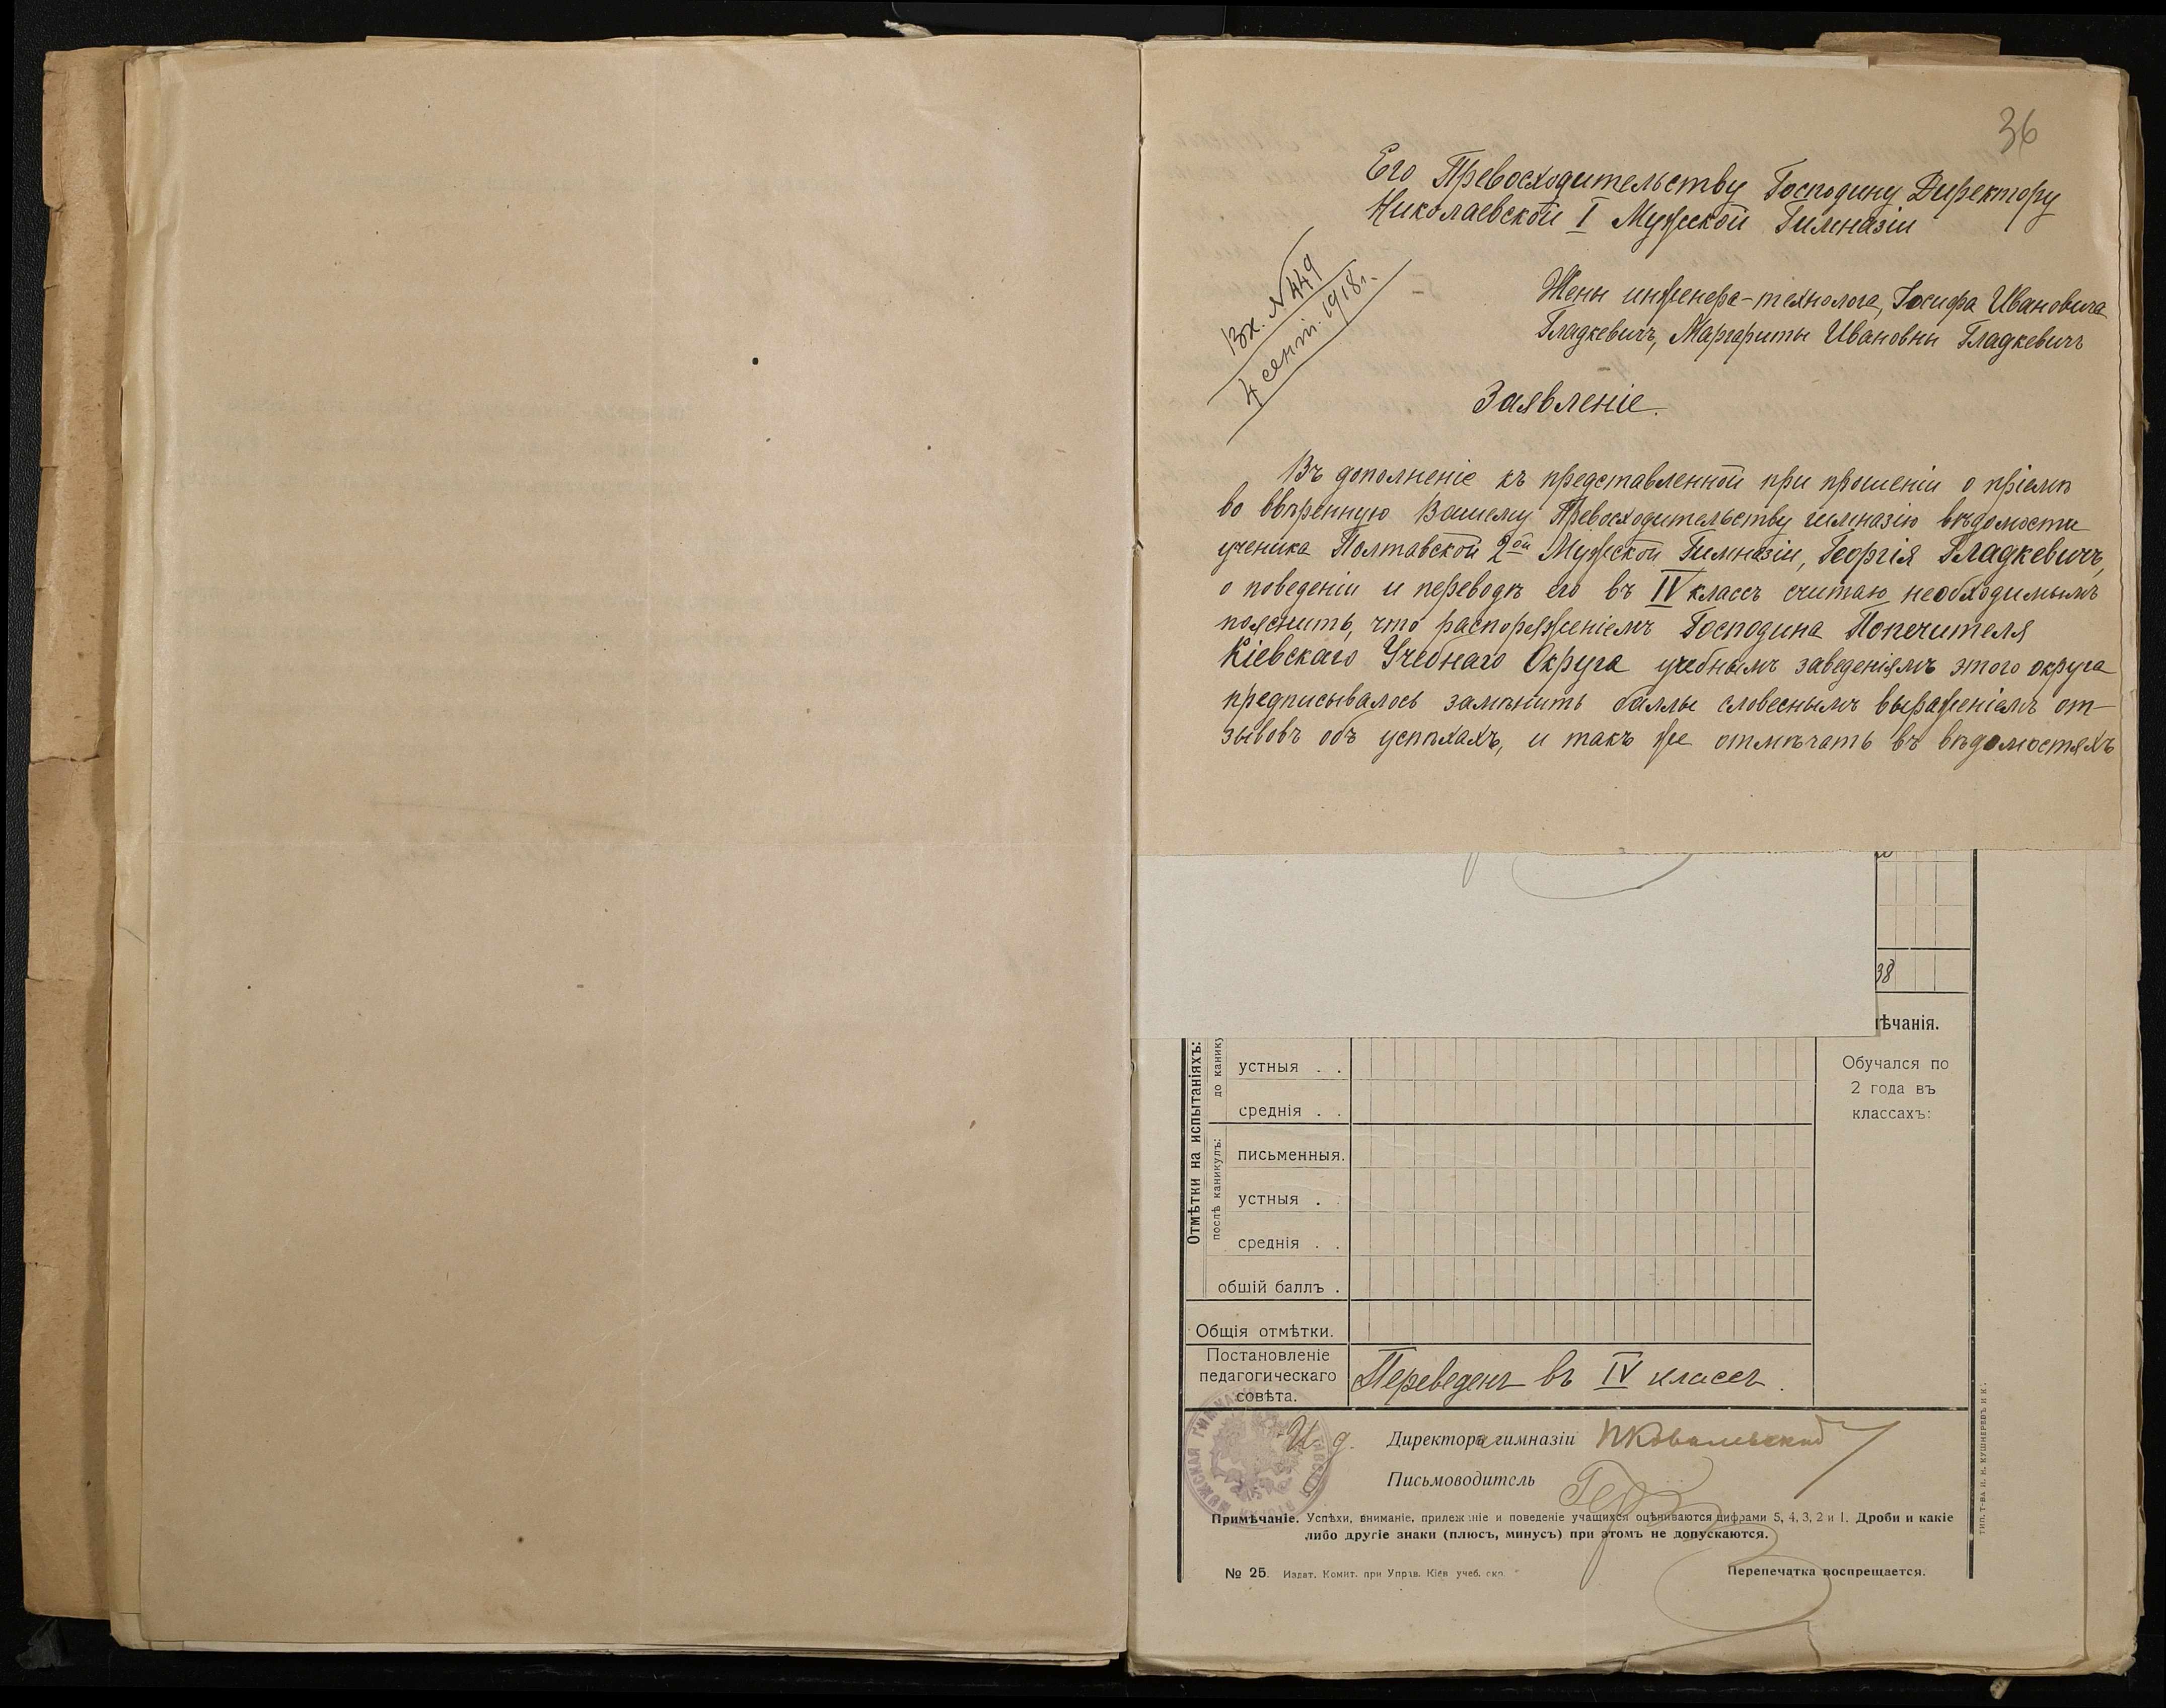 36
Его Превосходительству Господину Директору
Николаевской I Мужской Гимназіи
Вх. N 449
4 сент. 1918 г.
Жены инженера-технолога, Іосифа Ивановича
Гладкевичъ, Маргариты Ивановны Гладкевичъ
Заявленіе.
Въ дополненіе къ представленной при прошеніи о пріемѣ
во ввѣренную Вашему Превосходительству гимназію вѣдомости
ученика Полтавской 2ой Мужской Гимназіи, Георгія Гладкевичъ,
о поведеніи и переводѣ его въ IV классъ считаю необходимымъ
пояснить, что распоряженіемъ Господина Попечителя
Кіевскаго Учебнаго Округа учебнымъ заведеніямъ этого округа
предписывалось замѣнить баллы словеснымъ выраженіемъ от-
зывовъ объ успѣхахъ, и такъ же отмѣчать въ вѣдомостяхъ
38
ѣчанія.
Обучался по
2 года въ
классахъ:
Отмѣтки на испытаніяхъ:
до канику
устныя . .
среднія . .
послѣ каникулъ:
письменныя.
устныя .
среднія . .
обшій баллъ .
Общія отмѣтки.
Постановленіе
педагогическаго
совѣта.
Переведенъ въ IV классъ.
И. д. Директора гимназіи ПКовалевскій
Письмоводитель
Примѣчаніе. Успѣхи, вниманіе, прилежаніе и поведеніе учащихся оцѣниваются цифрами 5, 4, 3, 2 и 1. Дроби и какіе
либо другіе знаки (плюсъ, минусъ) при этомъ не допускаются.
№ 25. Издат. Комит. при Управ. Кіев. учеб. окр.
Перепечатка воспрещается.
ТИП. Т-ВА И. Н. КУШНЕРЕВЪ И К°.